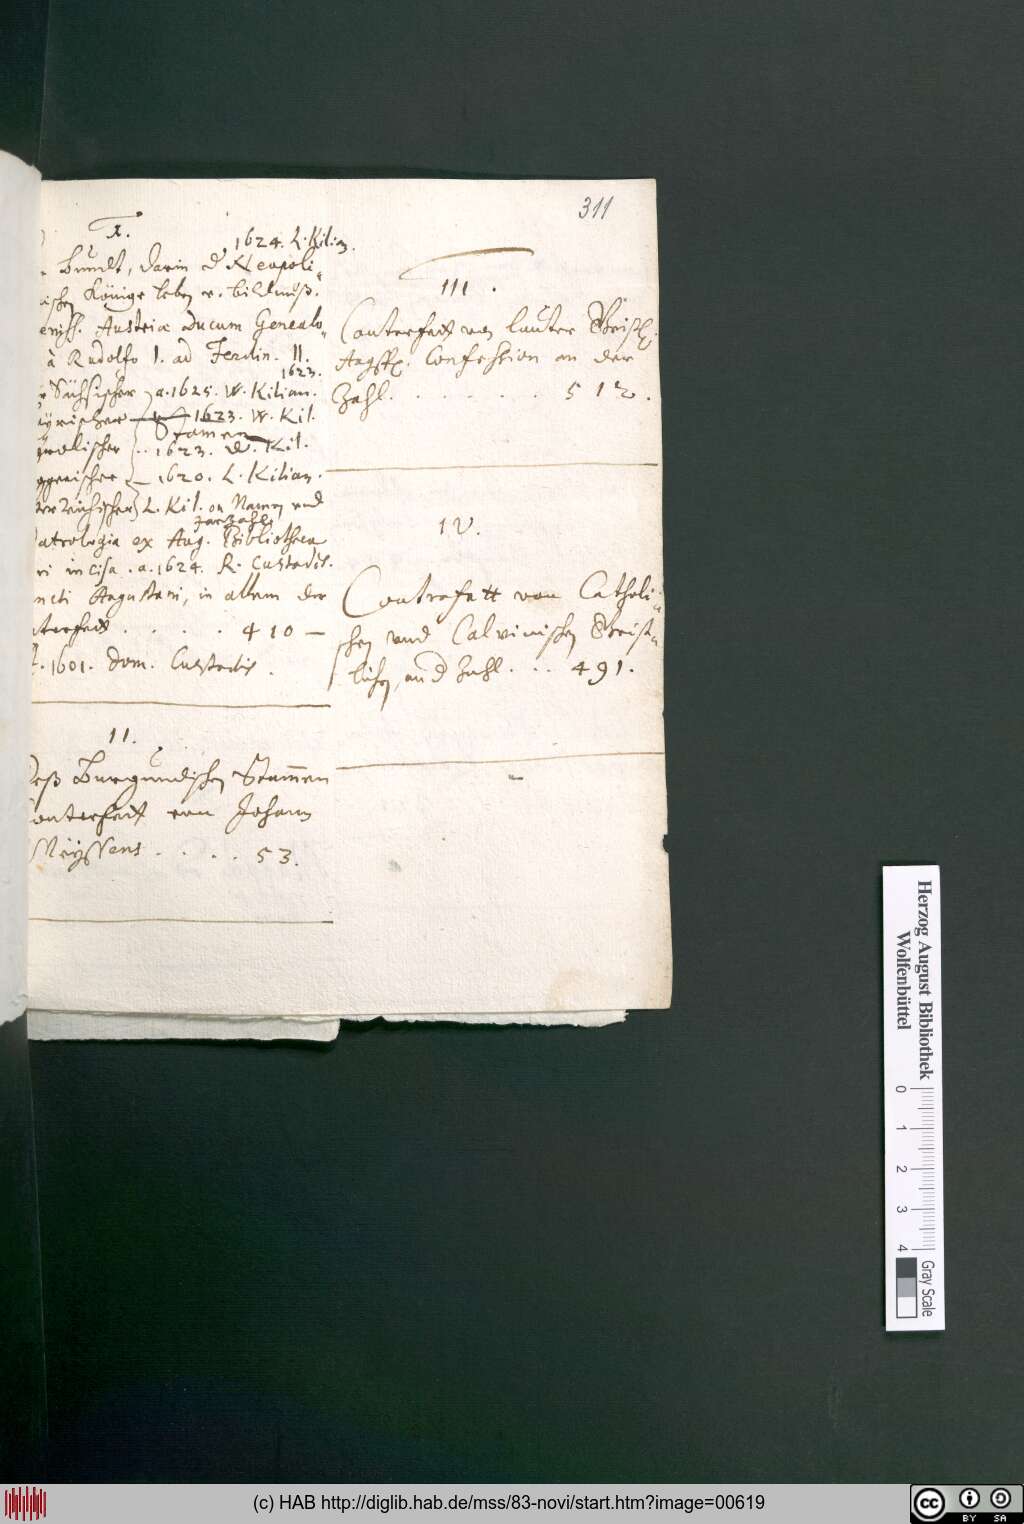 311
I.
1624. L. Kilian.
Bundt, darin d. Neapoli-
ischen Könige leben v. bildnuß.
Austriæ Ducum Genealo-
à Rudolfo I. ad Ferdin. II.
1623.
Sächsischer a. 1625. W. Kilian.
1623. W. Kil.
Stamen
1623. Kil.
1620. L. Kilian.
L. Kil. on Namen und
Jarzahl
ex Aug. Bibliotheca
incisa. a. 1624. R. Custodis.
Augustani, in allem der
410 —
1601. Dom. Custodis.
II.
Deß Burgundischen Stammen
Conterfeitt von Johann
Meyssens . . . . 53.
III.
Conterfeitt von lauter Geistl.
Augsp. Confession an der
Zahl. . . . . . . 512.
IV.
Contrafatt von Catholi-
schen und Calvinischen Geist-
lichen, and Zahl . . . 491.
Herzog August Bibliothek
Wolfenbüttel
0 1 2 3 4
Gray Scale
(c) HAB http://diglib.hab.de/mss/83-novi/start.htm?image=00619
cc BY SA